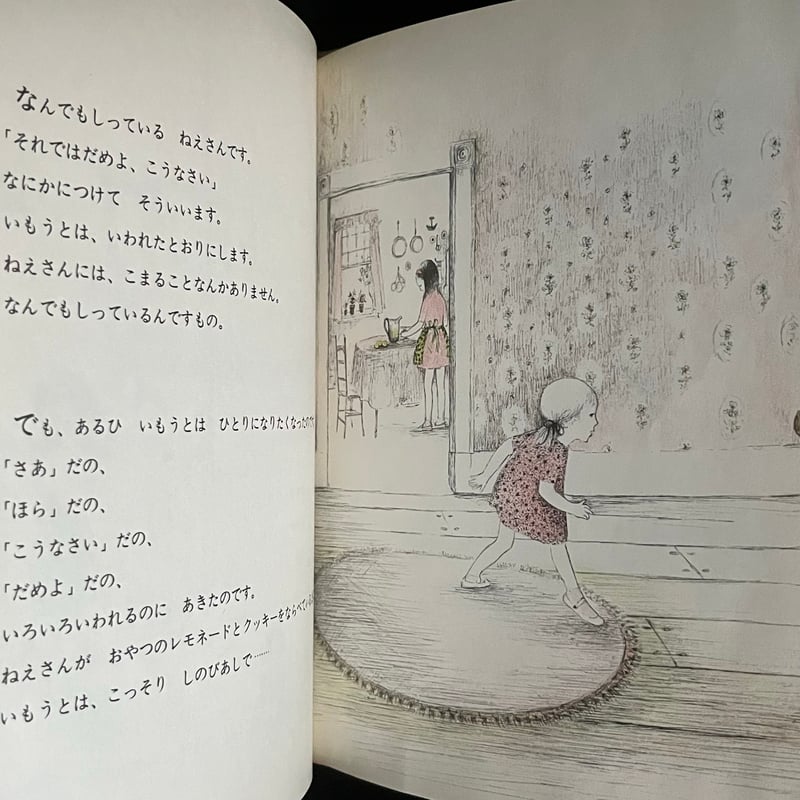 なんでもしっている　ねえさんです。
「それではだめよ、こうなさい」
なにかにつけて　そういいます。
いもうとは、いわれたとおりにします。
ねえさんには、こまることなんかありません。
なんでもしっているんですもの。
でも、あるひ　いもうとは　ひとりになりたくなったのです
「さあ」だの、
「ほら」だの、
「こうなさい」だの、
「だめよ」だの、
いろいろいわれるのに　あきたのです。
ねえさんが　おやつのレモネードとクッキーをならべている
いもうとは、こっそり　しのびあしで……